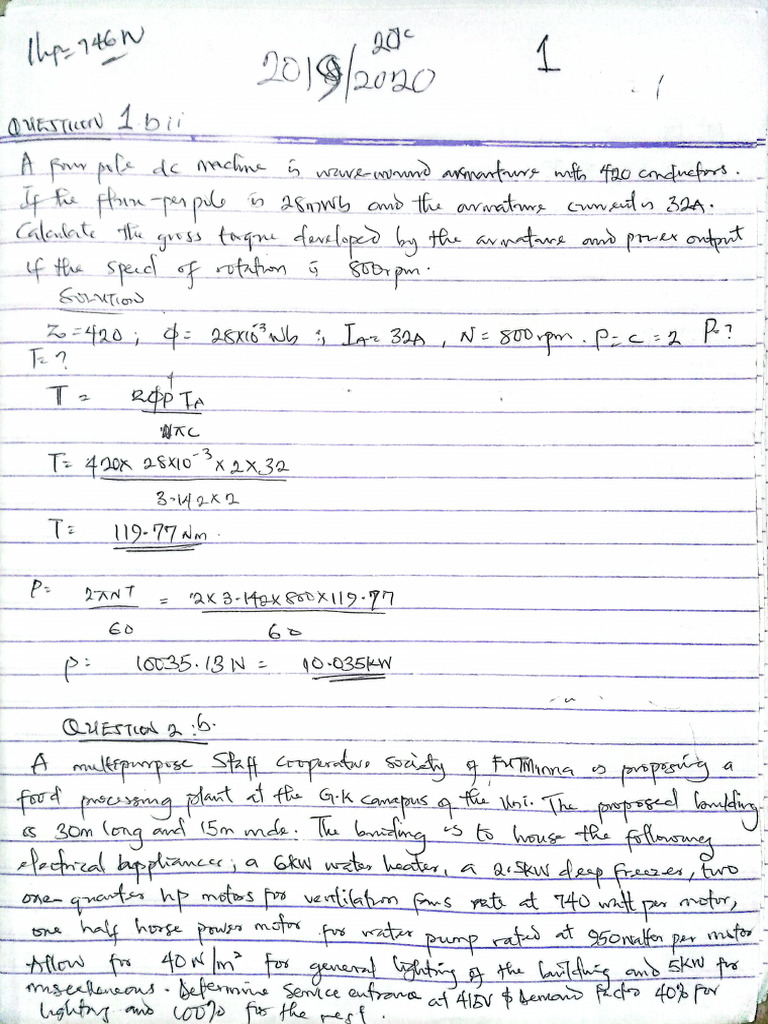 1hp=746W
20c
2019/2020
1
QUESTION 1.bii
A four pole dc machine is wave-wound armanture with 420 conductors.
If the flux-per pole is 28mWb and the armature current is 32A.
Calculate the gross torque developed by the armature and power output
if the speed of rotation is 800rpm.
SOLUTION
Z=420; Φ= 28x10⁻³Wb ; IA= 32A, N= 800rpm. P=C=2 P=?
T=?
T = ZΦP IA
πC
T= 420x 28x10⁻³x2x32
3.142x2
T= 119.77Nm.
P= 2πNT = 2x3.142x800x119.77
60 60
P= 10035.13N = 10.035kW
QUESTION 2:b.
A multipurpose Staff Cooperative Society of FUTMinna is proposing a
food processing plant at the G.K campus of the Uni. The proposed building
is 30m long and 15m wide. The building is to house the following
electrical appliances; a 6kW water heater, a 2.5kW deep freezer, two
one-quarter hp motors for ventilation fans rate at 740 watt per motor,
one half horse power motor for water pump rated at 950watter per motor
Allow for 40W/m² for general lighting of the building and 5kW for
miscellaneous. Determine service entrance at 415V & Demand factor 40% for
lighting and 100% for the rest.